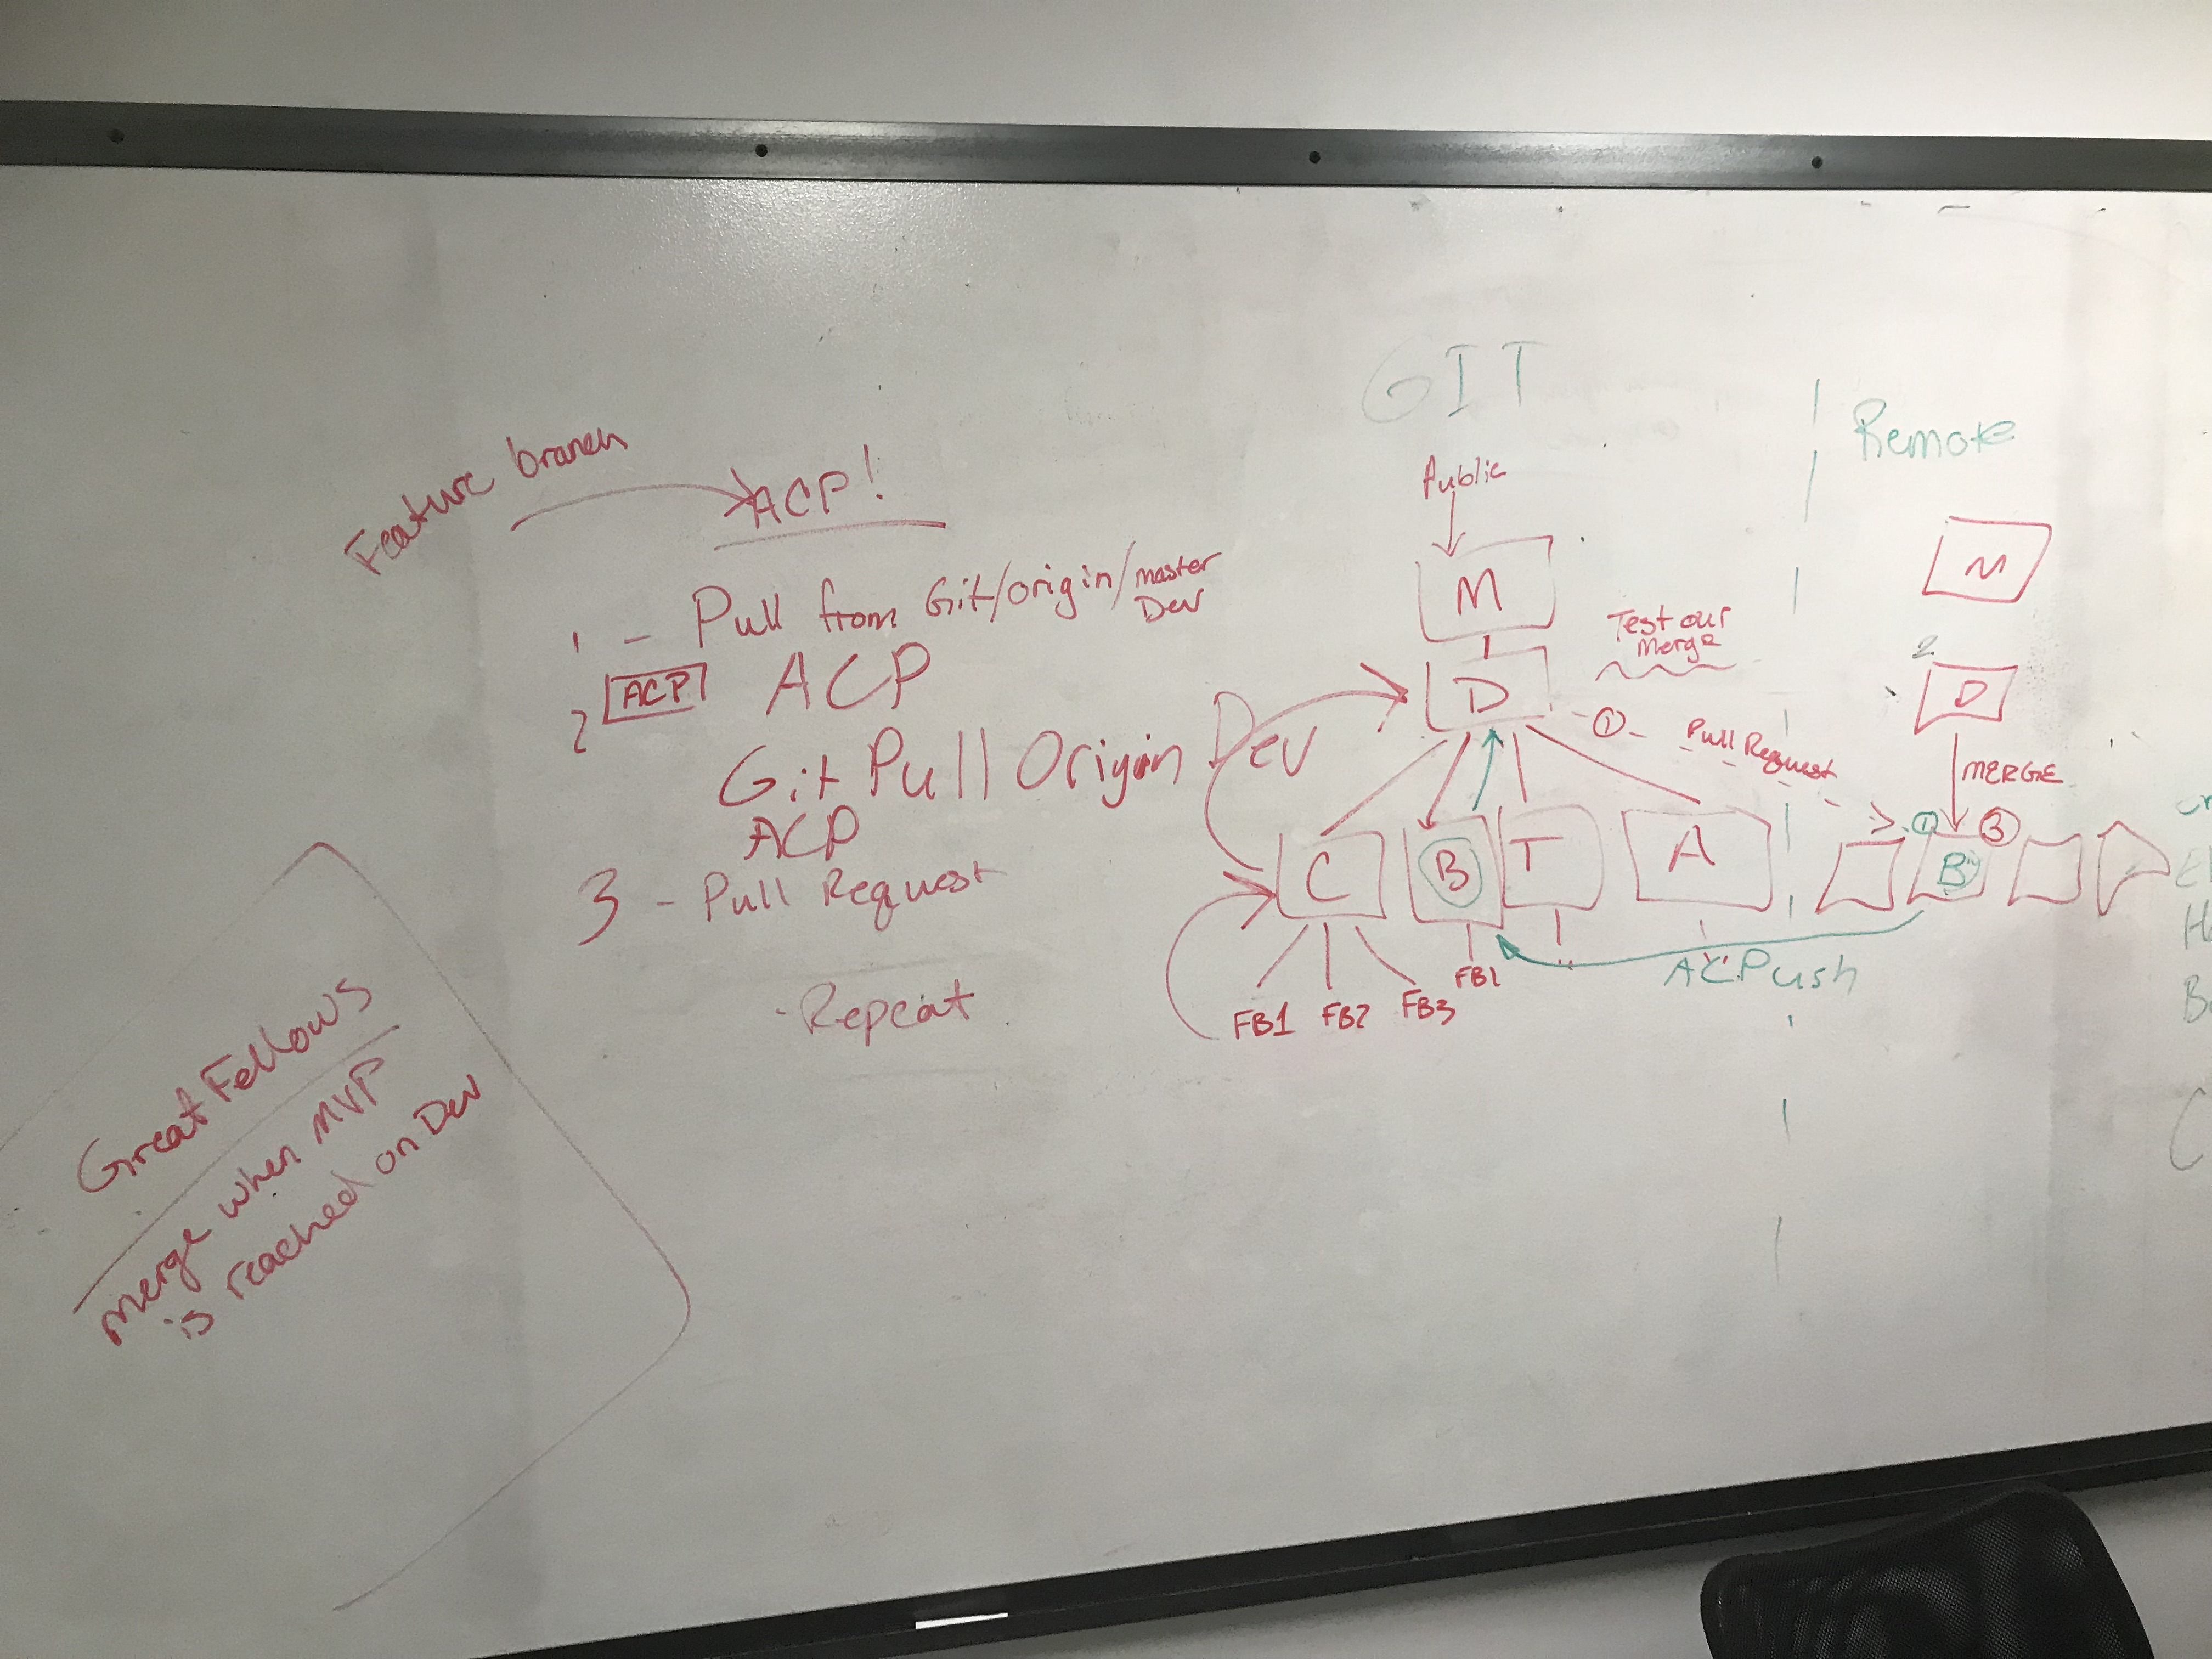 Feature branch
ACP!
1 - Pull from Git/origin/master
Dev
2 ACP ACP
Git Pull Origin Dev
ACP
3 - Pull Request
- Repeat
Great Fellows
merge when MVP
is reached on Dev
GIT
Public
M
D
Test our
Merge
1 - Pull Request
C B T A
FB1 FB2 FB3 FB1
ACPush
Remote
M
2
D
MERGE
1 3
B